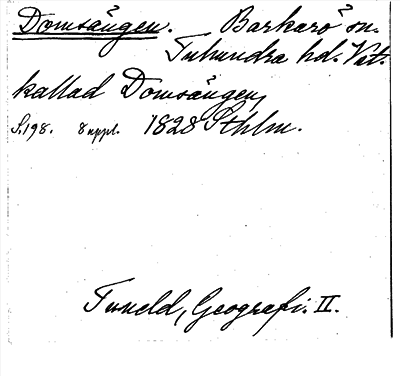 Domsängen. Barkarö sn.
Tuhundra hd. Vst.
kallad Domsängen,
S. 198. 8 uppl. 1828 Sthlm.
Tuneld, Geografi. II.